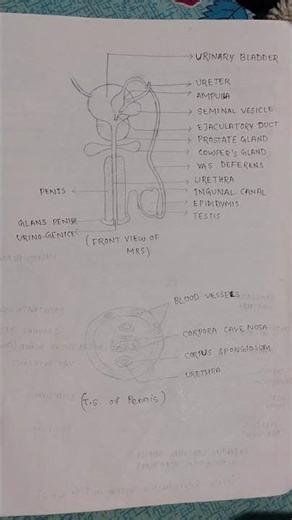 URINARY BLADDER
URETER
AMPULLA
SEMINAL VESICLE
EJACULATORY DUCT
PROSTATE GLAND
COWPER'S GLAND
VAS DEFERENS
URETHRA
PENIS
INGUNAL CANAL
EPIDIDYMIS
GLANS PENISE
TESTIS
URINO-GENICE
(FRONT VIEW OF
MRS)
BLOOD VESSELS
CORPORA CAVENOSA
CORPUS SPONGIOSUM
URETHRA
(T.S. OF Pennis)